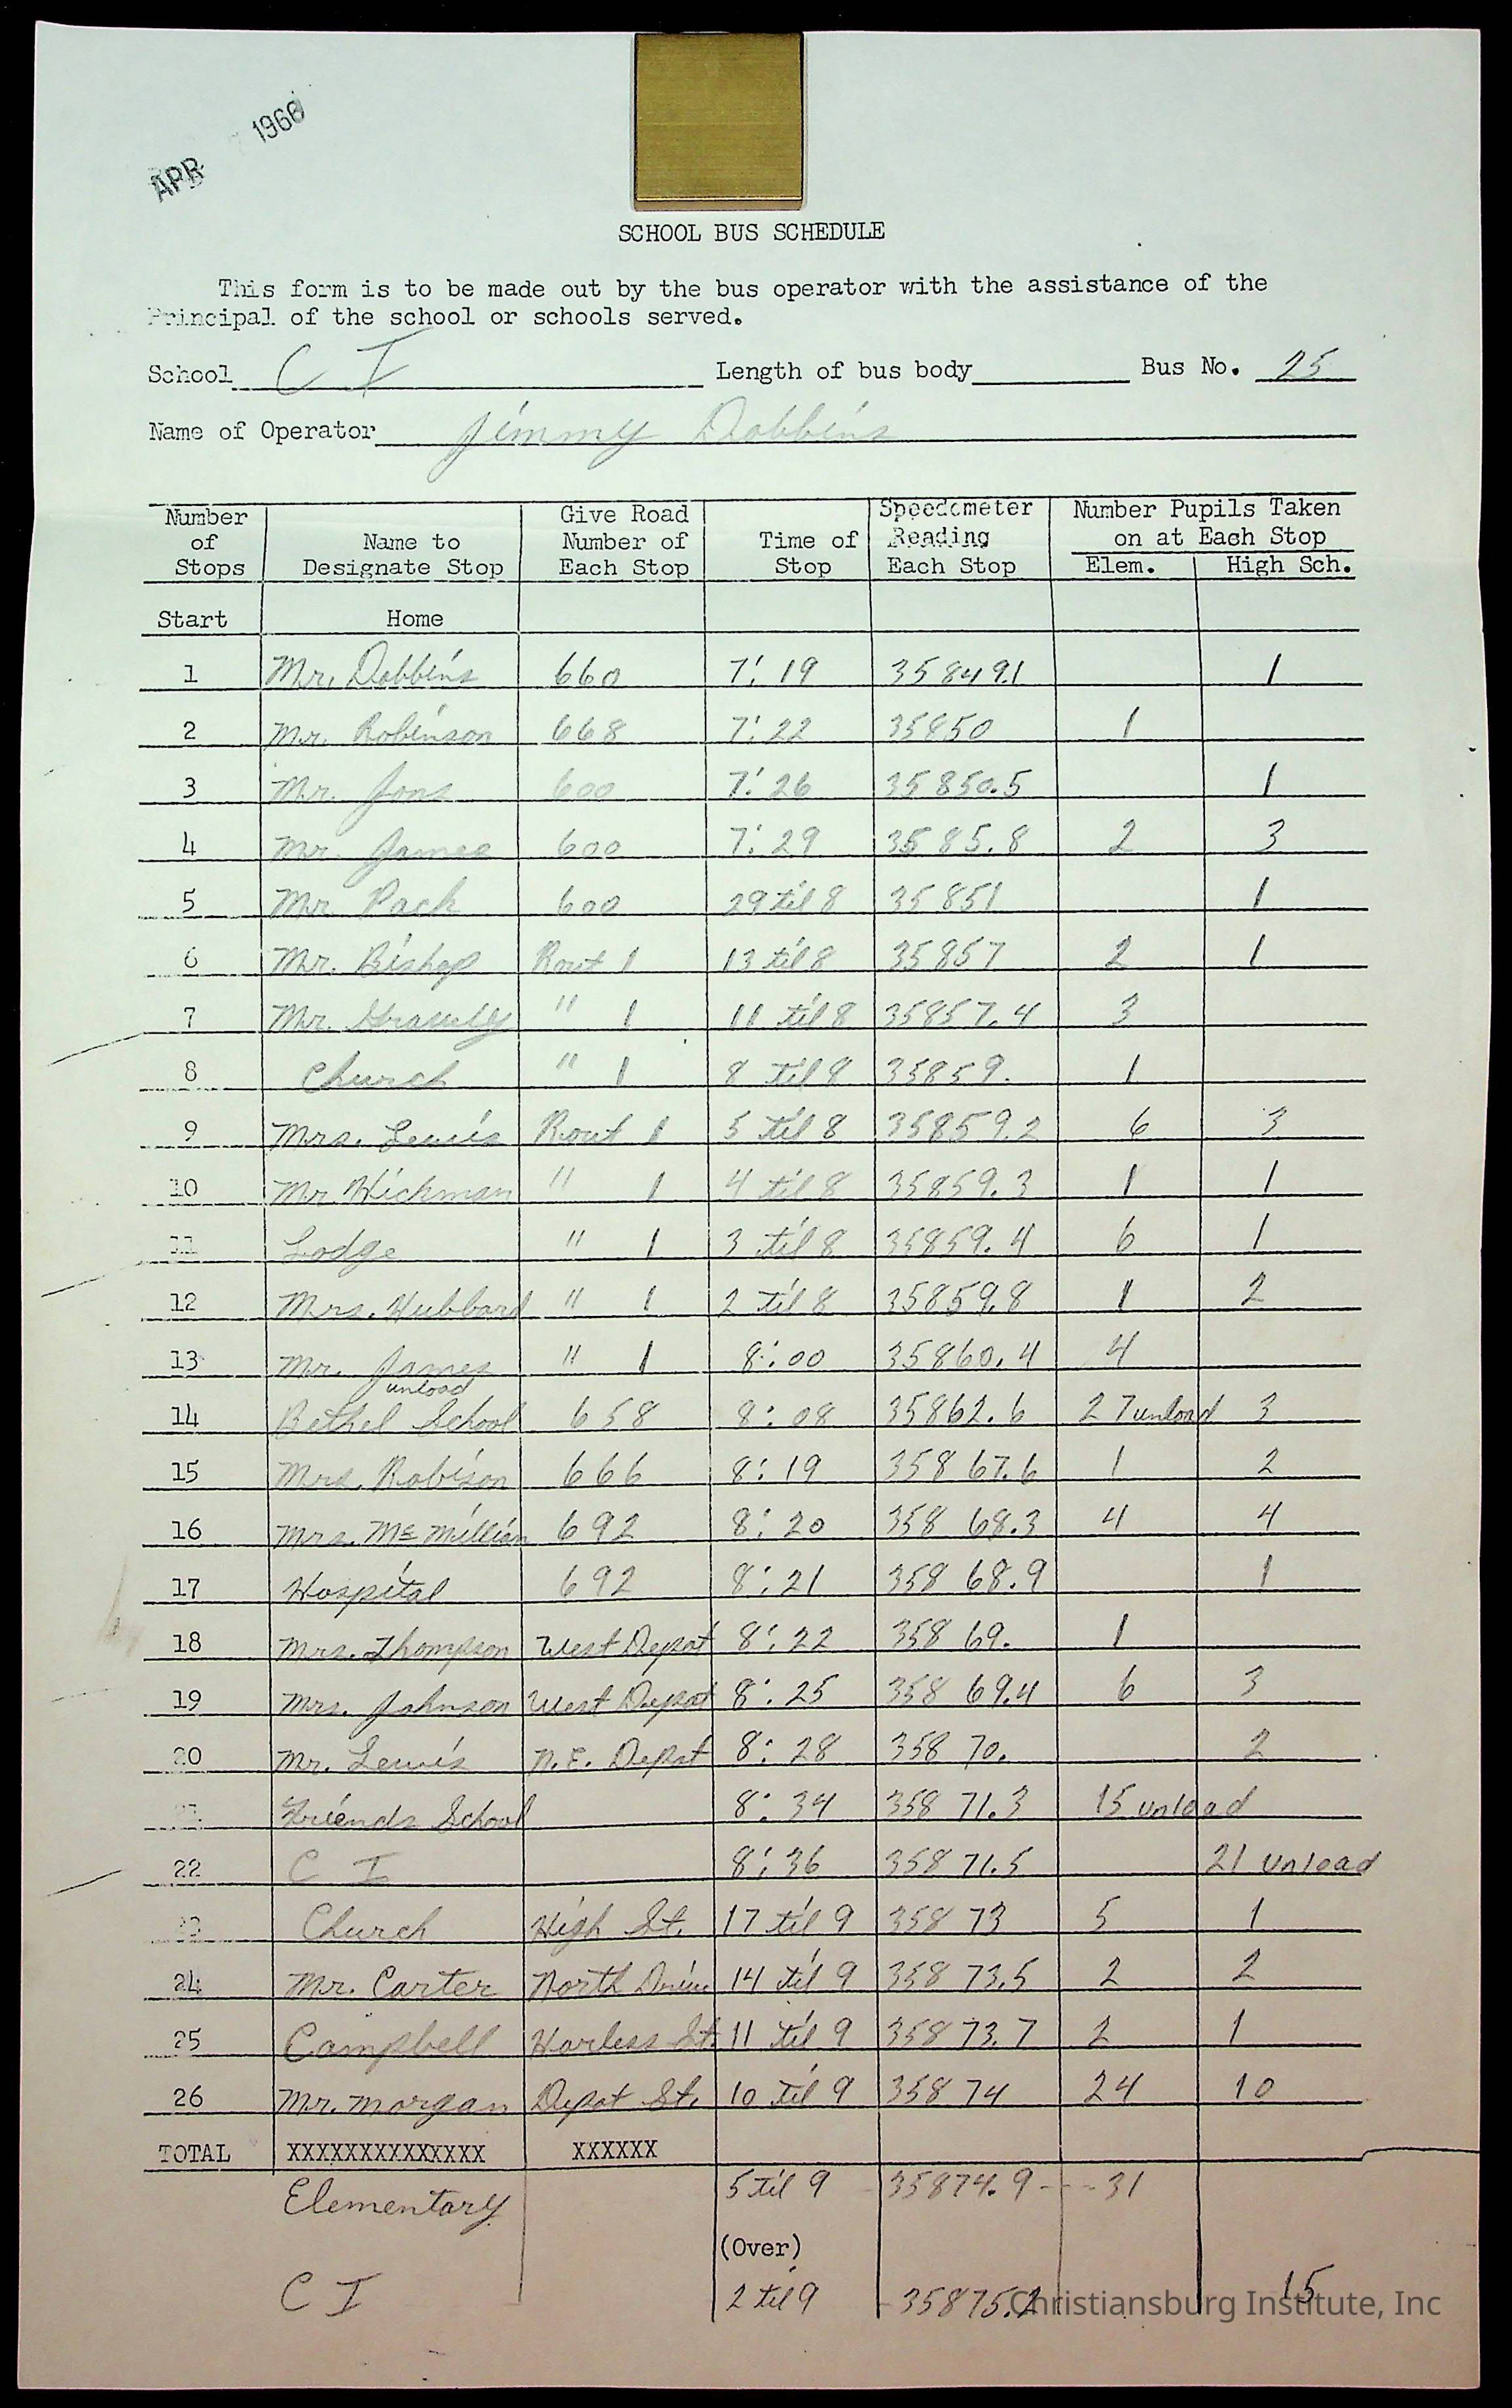 APR 1966
SCHOOL BUS SCHEDULE
This form is to be made out by the bus operator with the assistance of the
Principal of the school or schools served.
School C I Length of bus body Bus No. 25
Name of Operator Jimmy Dobbins
Number of Stops Name to Designate Stop Give Road Number of Each Stop Time of Stop Speedometer Reading Each Stop Number Pupils Taken on at Each Stop Elem. High Sch.
Start Home
1 Mr. Dobbins 660 7:19 35849.1 1
2 Mr. Robinson 668 7:22 35850 1
3 Mr. Jons 600 7:26 35850.5 1
4 Mr. James 600 7:29 3585.8 2 3
5 Mr Pack 600 29 til 8 35851 1
6 Mr. Bishop Rout 1 13 til 8 35857 2 1
7 Mr. " 1 11 til 8 35857.4 3
8 Church " 1 8 til 8 35859. 1
9 Mrs. Lewis Rout 1 5 til 8 35859.2 6 3
10 Mr Hickman " 1 4 til 8 35859.3 1 1
11 Lodge " 1 3 til 8 35859.4 6 1
12 Mrs. Hubbard " 1 2 til 8 35859.8 1 2
13 Mr. James " 1 8:00 35860.4 4
unload
14 Bethel School 658 8:08 35862.6 27 unload 3
15 Mrs. Robison 666 8:19 358 67.6 1 2
16 Mrs. Mc Millian 692 8:20 358 68.3 4 4
17 Hospital 692 8:21 358 68.9 1
18 Mrs. Thompson West Depot 8:22 358 69. 1
19 Mrs. Johnson West Depot 8:25 358 69.4 6 3
20 Mr. Lewis N.E. Depot 8:28 358 70. 2
21 Friends School 8:34 358 71.3 15 unload
22 C I 8:36 358 71.5 21 unload
23 Church High St. 17 til 9 358 73 5 1
24 Mr. Carter North Drive 14 til 9 358 73.5 2 2
25 Campbell Harless St. 11 til 9 358 73.7 2 1
26 Mr. Morgan Depot St. 10 til 9 358 74 24 10
TOTAL XXXXXXXXXXXXXX XXXXXX
Elementary 5 til 9 35874.9 - - - 31
(Over)
C I 2 til 9 35875.2 15
Christiansburg Institute, Inc